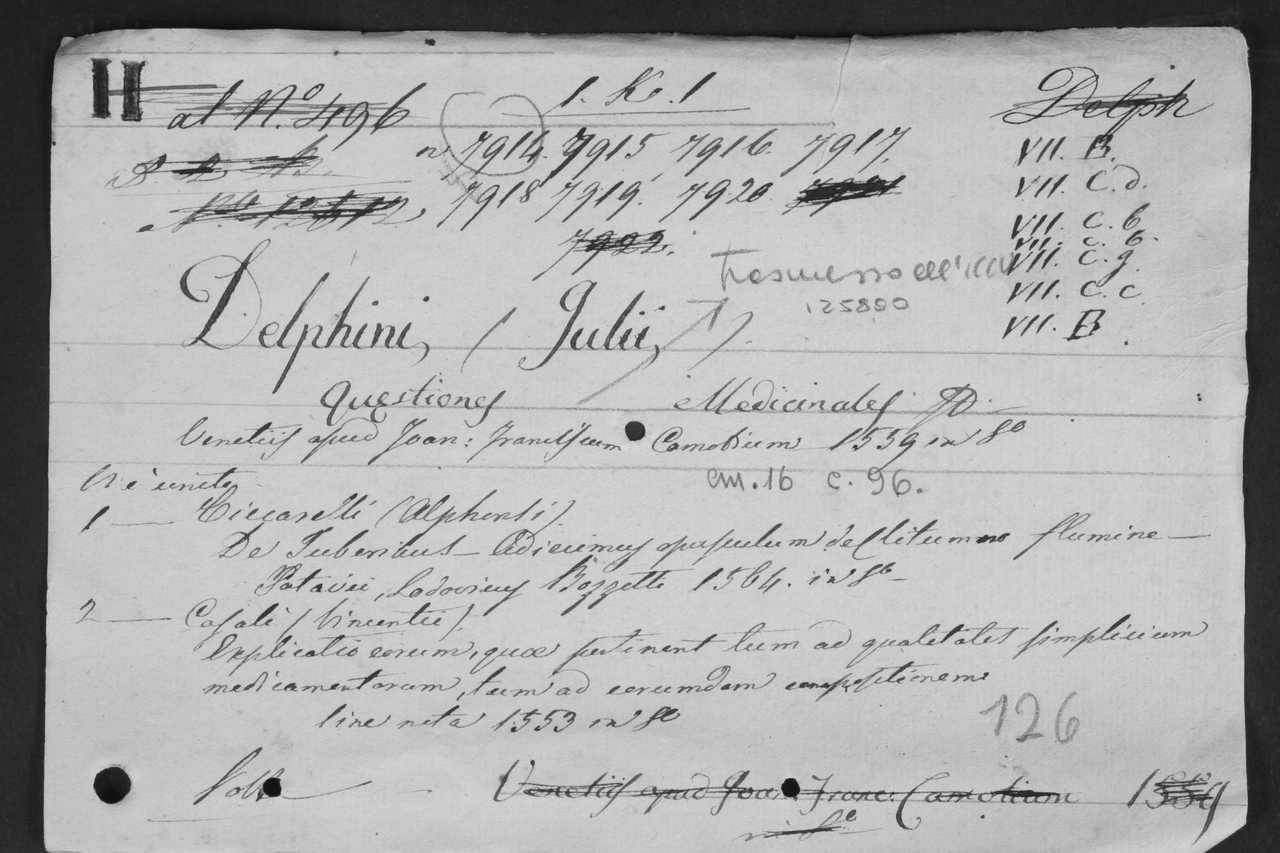 H
al N.º 496
1. K. 1
Delph
n. 7914. 7915, 7916. 7917.
7918 7919. 7920
7922.
VII. B.
VII. C. d.
VII. c. b
VII. c. b.
VII. c. g.
VII. c. c.
VII. B.
Trasmesso all'ICCU
125890
Delphini, (Julii,)
Questiones Medicinales
Venetiis apud Joan: Franciscum Camotium 1559 in 8º
cm. 16 c. 96.
Vi è unito
1 — Ciccarelli (Alphonsi).
De Tuberibus — Adiecimus opusculum de Clitumno flumine —
Patavii, Ludovicus Bozzetti 1564. in 8º —
2 — Casali (Vincentii).
Explicatio eorum, quæ pertinent tum ad qualitates simplicium
medicamentorum, tum ad eorumdem compositionem
sine nota 1553 in 8º
126
Volta
Venetiis apud Joan: Franc: Camotium 1559
in 8º